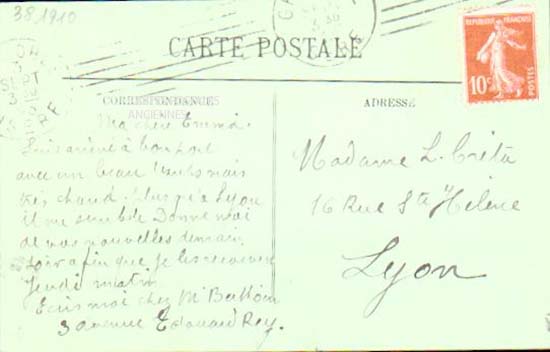 3 8 1910
CARTE POSTALE
CORRESPONDANCE
ANCIENNES
ADRESSE
REPUBLIQUE FRANÇAISE
10c
POSTES
Ma chère Emma.
Suis arrivé à bon port
avec un beau temps mais
très chaud. plus qu'à Lyon
il me semble Donne moi
de vos nouvelles demain
soir afin que je les reçoive
Jeudi matin
Ecris moi chez Mr
3 avenue Edouard Rey.
Madame L.
16 Rue Ste Hélène
Lyon